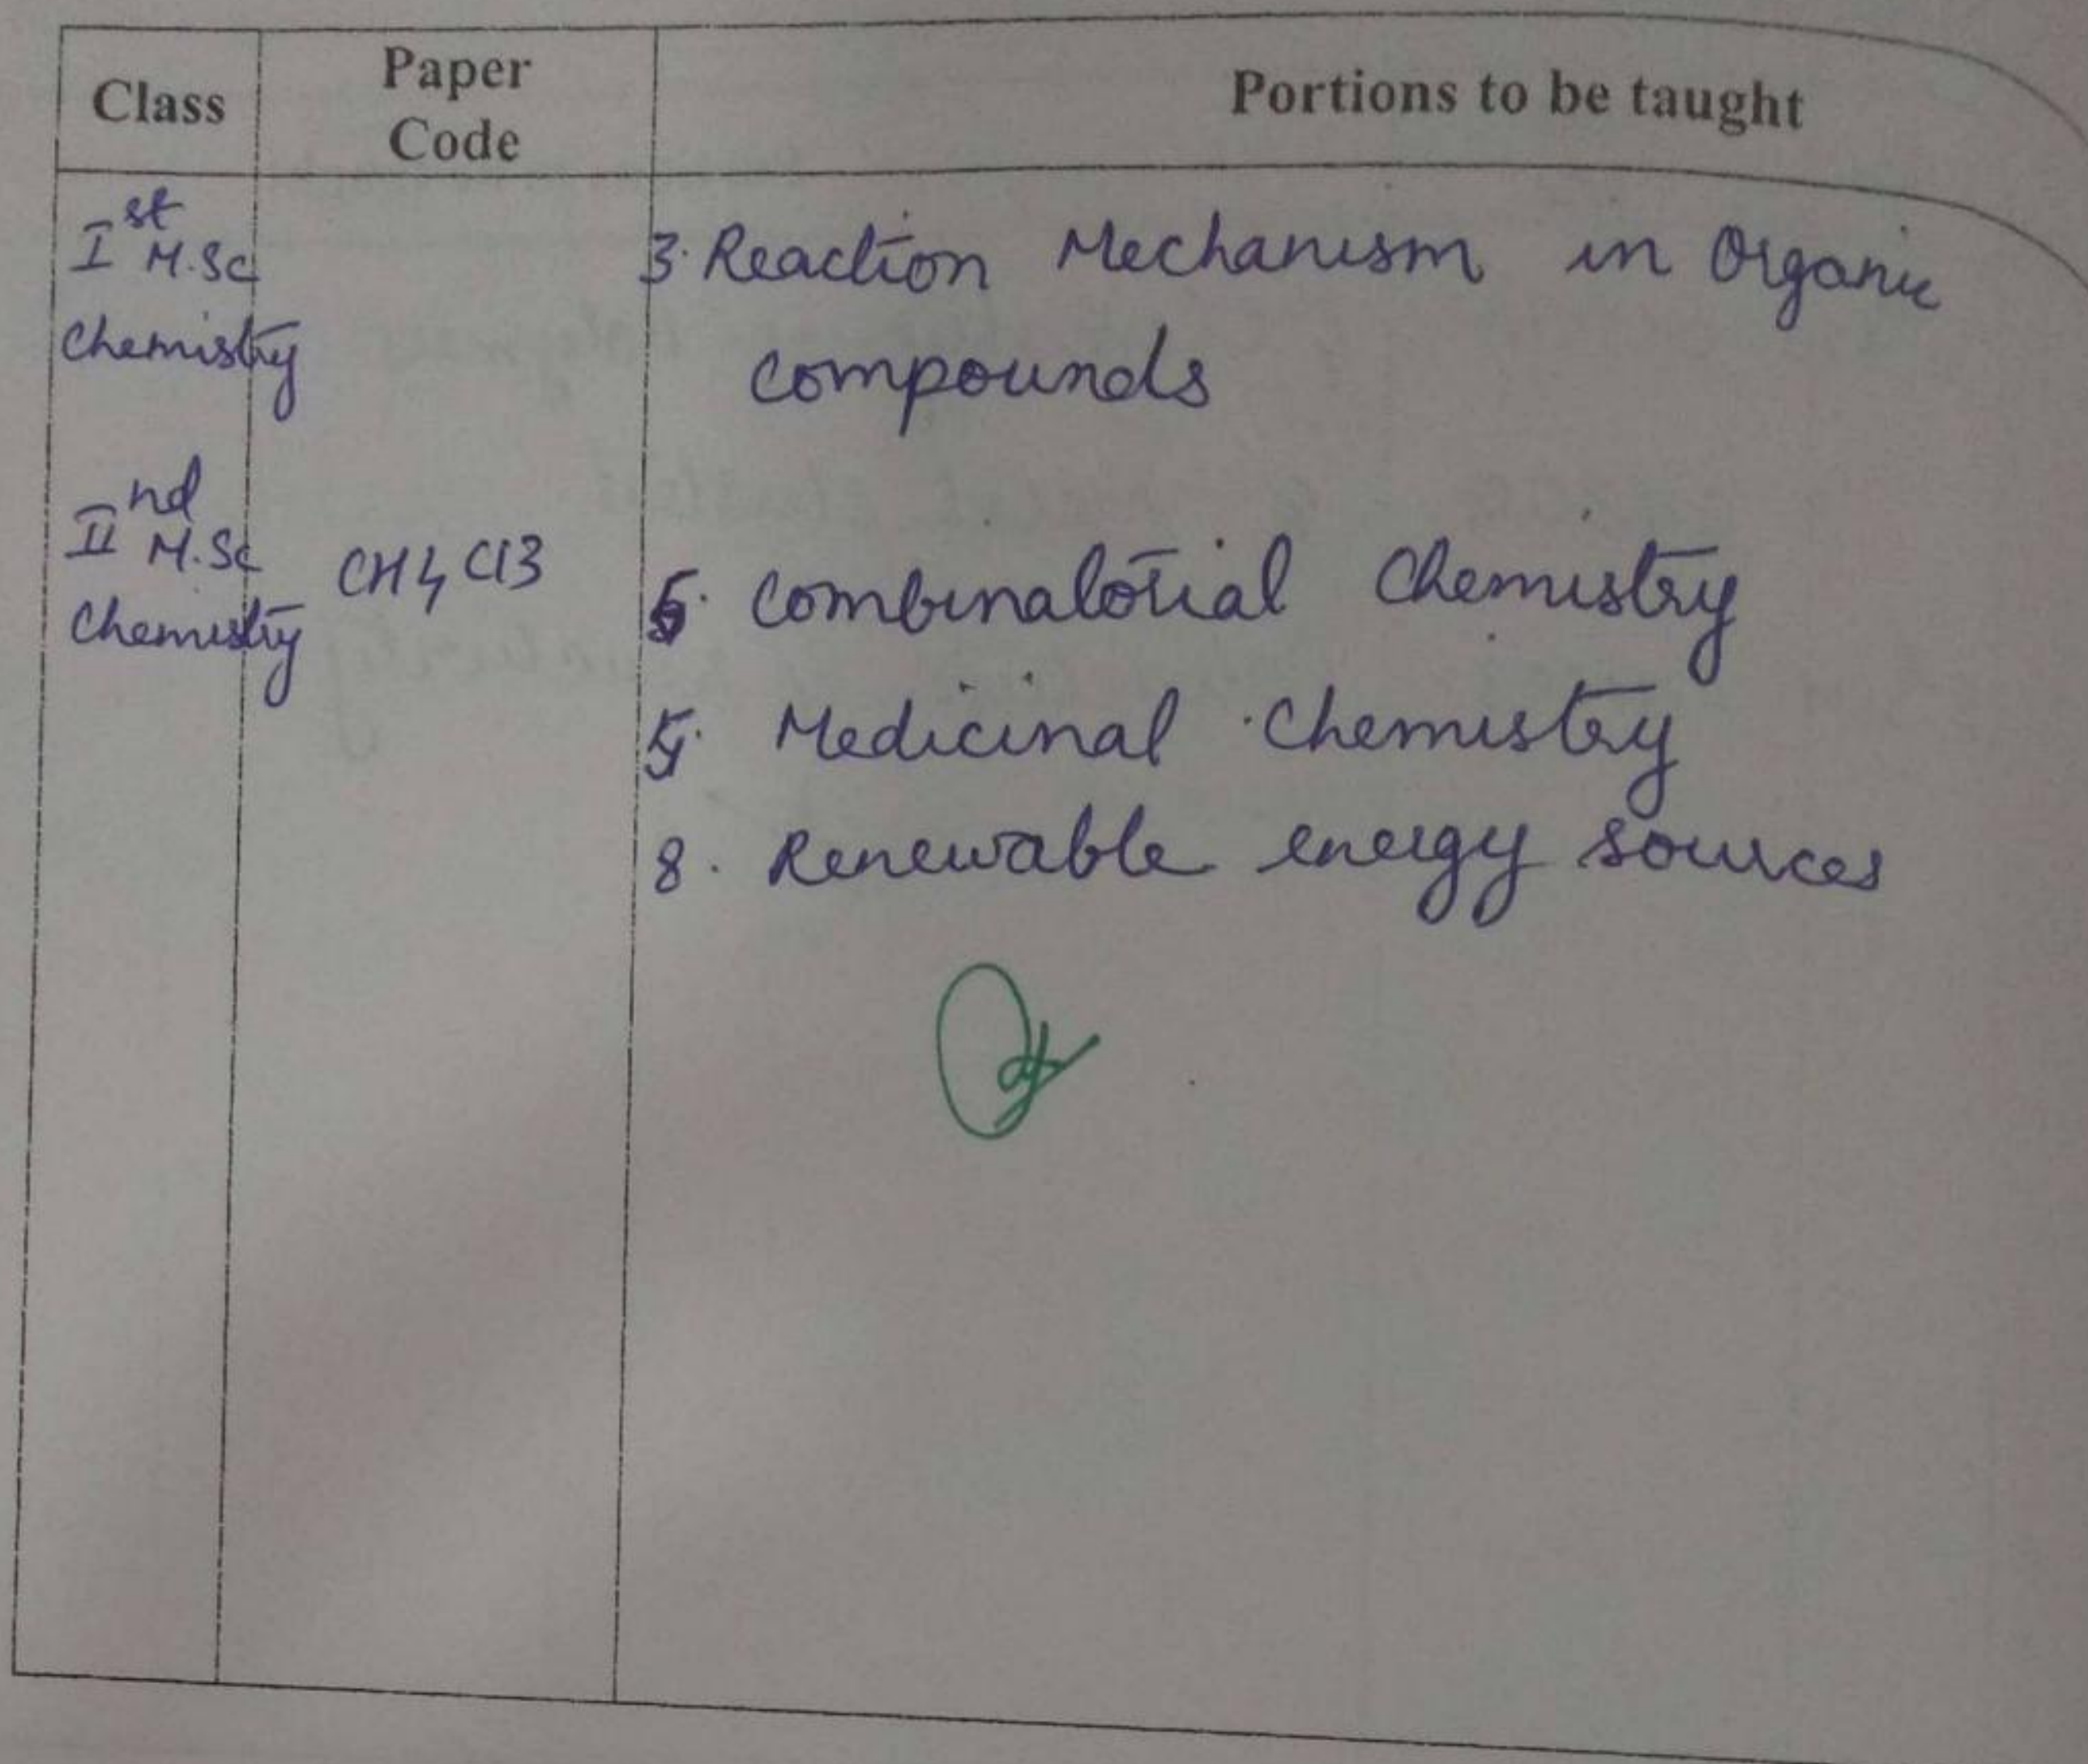 Class Paper Code Portions to be taught
Ist M.Sc Chemistry 3. Reaction Mechanism in Organic
compounds
IInd M.Sc Chemistry CH4C13 5. Combinatorial Chemistry
5. Medicinal Chemistry
8. Renewable energy sources